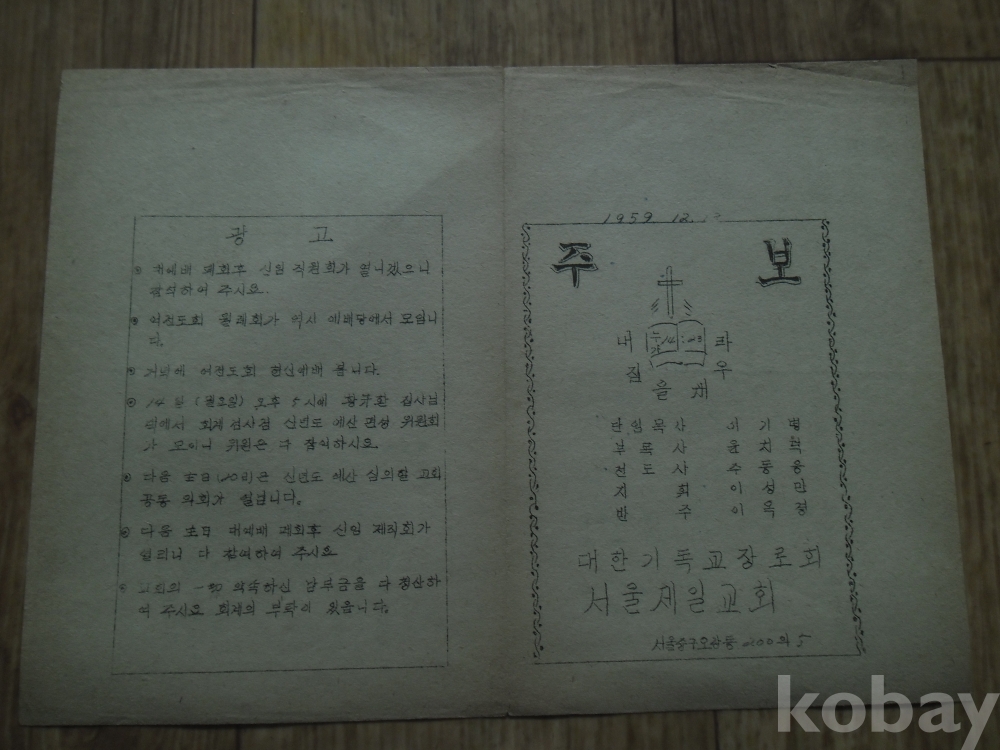 광 고
대예배 폐회후 신임 직원회가 열니겠으니
참석하여 주시요.
여전도회 월례회가 역시 예배당에서 모입니
다.
여전도회 헌신예배 봅니다.
14일 (월요일) 오후 5시에 집사님
댁에서 회계 신년도 예산 편성 위원회
가 모이니 위원은 다 참석하시요.
다음 主日 신년도 예산 심의할 교회
공동 의회가 열립니다.
다음 主日 대예배 폐회후 신임 제직회가
열리니 다 참여하여 주시요.
약속하신 납부금을 다 청산하
여 주시요 회계의 부탁이 있읍니다.
1959. 12.
주 보
내 집을 채우라
눅 14:23
담임목사 이기병
부목사 윤치
전도사 주동
지휘 이성민
반주 이옥경
대한기독교장로회
서울제일교회
서울중구오장동 200의 5
kobay